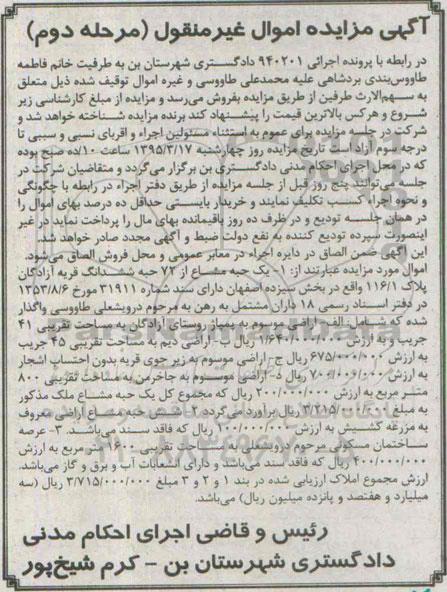 آگهی مزایده اموال غیرمنقول (مرحله دوم)
در رابطه با پرونده اجرائی ۹۴۰۲۰۱ دادگستری شهرستان بن به طرفیت خانم فاطمه
طاووس‌بندی بردشاهی علیه محمدعلی طاووسی و غیره اموال توقیف شده ذیل متعلق
به سهم‌الارث طرفین از طریق مزایده بفروش می‌رسد و مزایده از مبلغ کارشناسی زیر
شروع و هرکس بالاترین قیمت را پیشنهاد کند برنده مزایده شناخته خواهد شد و
شرکت در جلسه مزایده برای عموم به استثناء مسئولین اجراء و اقربای نسبی و سببی تا
درجه سوم آزاد است تاریخ مزایده روز چهارشنبه ۱۳۹۵/۳/۱۷ ساعت ۱۰/ده صبح بوده
که در محل اجرای احکام مدنی دادگستری بن برگزار می‌گردد و متقاضیان شرکت در
جلسه می‌توانند پنج روز قبل از جلسه مزایده از طریق دفتر اجراء در رابطه با چگونگی
و نحوه اجراء کسب تکلیف نمایند و خریدار بایستی حداقل ده درصد بهای اموال را
در همان جلسه تودیع و در ظرف ده روز باقیمانده بهای مال را پرداخت نماید در غیر
اینصورت سپرده تودیع کننده به نفع دولت ضبط و آگهی مجدد صادر خواهد شد.
این آگهی ضمن الصاق در دایره اجراء در معابر عمومی و محل فروش الصاق می‌شود.
اموال مورد مزایده عبارتند از: ۱- یک حبه مشاع از ۷۲ حبه ششدانگ قریه آزادگان
پلاک ۱۱۶/۱ واقع در بخش سیزده اصفهان دارای سند شماره ۳۱۹۱۱ مورخ ۱۳۵۳/۸/۶
در دفتر اسناد رسمی ۱۸ داران مشتمل به رهن به مرحوم درویشعلی طاووسی واگذار
شده که شامل: الف- اراضی موسوم به پمپاژ روستای آزادگان به مساحت تقریبی ۴۱
جریب و به ارزش ۱/۶۴۰/۰۰۰/۰۰۰ ریال ب- اراضی دیم به مساحت تقریبی ۴۵ جریب
به ارزش ۶۷۵/۰۰۰/۰۰۰ ریال ج- اراضی موسوم به زیر جوی قریه بدون احتساب اشجار
به ارزش ۷۰۰/۰۰۰/۰۰۰ ریال د- اراضی موسوم به جاخرمن به مساحت تقریبی ۸۰۰
متر مربع به ارزش ۲۰۰/۰۰۰/۰۰۰ ریال که مجموع کل یک حبه مشاع ملک مذکور
به مبلغ ۳/۲۱۵/۰۰۰/۰۰۰ ریال برآورد می‌گردد ۲- شش حبه مشاع اراضی معروف
به مزرعه کشیش به ارزش ۱۰۰/۰۰۰/۰۰۰ ریال که فاقد سند می‌باشند. ۳- عرصه
ساختمان مسکونی مرحوم درویشعلی به مساحت تقریبی ۱۶۰۰ متر مربع به ارزش
۴۰۰/۰۰۰/۰۰۰ ریال که فاقد سند می‌باشد و دارای انشعابات آب و برق و گاز می‌باشد.
ارزش مجموع املاک ارزیابی شده در بند ۱ و ۲ و ۳ مبلغ ۳/۷۱۵/۰۰۰/۰۰۰ ریال (سه
میلیارد و هفتصد و پانزده میلیون ریال) می‌باشد.
رئیس و قاضی اجرای احکام مدنی
دادگستری شهرستان بن - کرم شیخ‌پور